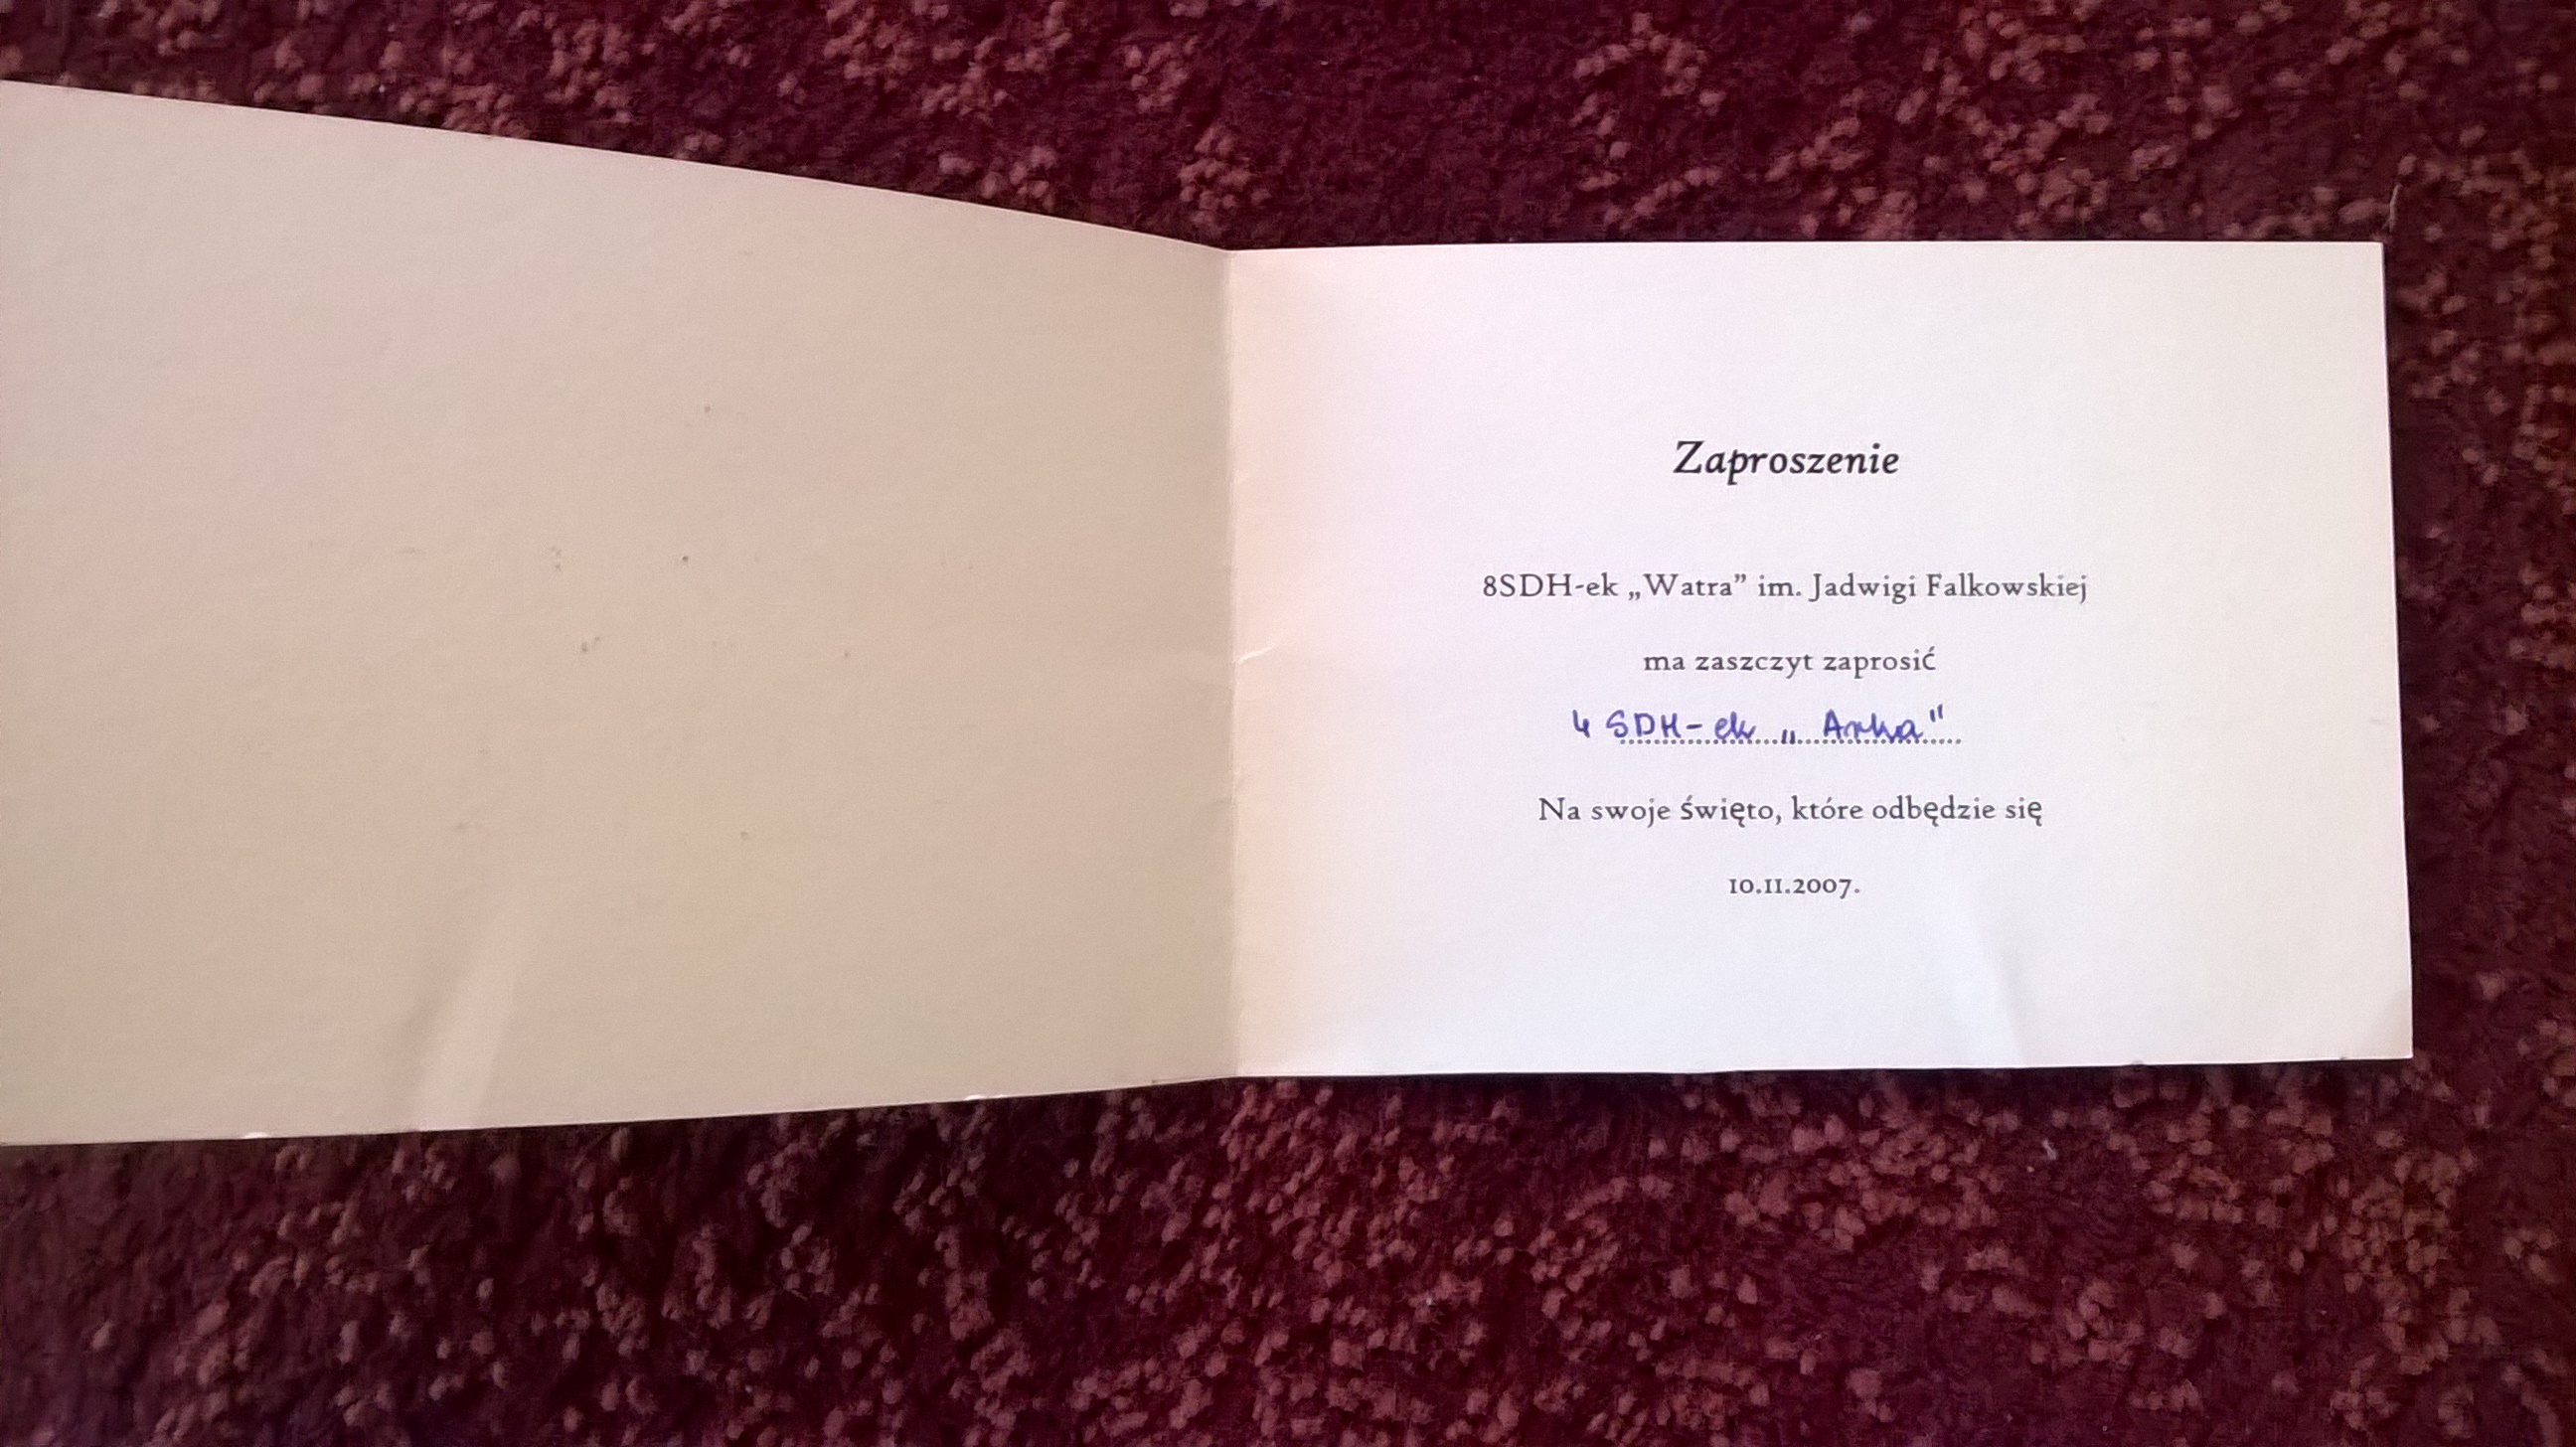 Zaproszenie
8SDH-ek „Watra” im. Jadwigi Falkowskiej
ma zaszczyt zaprosić
4 SDH-ek „Arka"
Na swoje święto, które odbędzie się
10.11.2007.